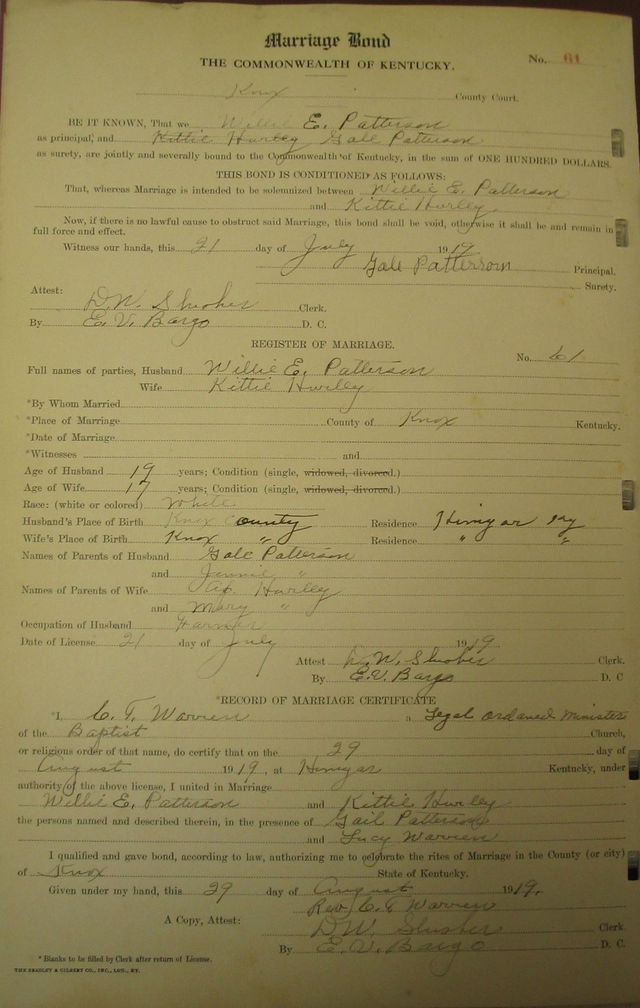 Marriage Bond
THE COMMONWEALTH OF KENTUCKY. No. 61
Knox County Court.
BE IT KNOWN, That we Willie E. Patterson
as principal, and Kittie Hurley Gale Patterson
as surety, are jointly and severally bound to the Commonwealth of Kentucky, in the sum of ONE HUNDRED DOLLARS.
THIS BOND IS CONDITIONED AS FOLLOWS:
That, whereas Marriage is intended to be solemnized between Willie E. Patterson
and Kittie Hurley
Now, if there is no lawful cause to obstruct said Marriage, this bond shall be void, otherwise it shall be and remain in
full force and effect.
Witness our hands, this 21 day of July 1919
Gale Patterson Principal.
Surety.
Attest:
D. W. Slusher Clerk.
By E. V. Bargo D. C.
REGISTER OF MARRIAGE.
No. 61
Full names of parties, Husband Willie E. Patterson
Wife Kittie Hurley
*By Whom Married
*Place of Marriage County of Knox Kentucky.
*Date of Marriage
*Witnesses and
Age of Husband 19 years; Condition (single, widowed, divorced.)
Age of Wife 17 years; Condition (single, widowed, divorced.)
Race: (white or colored) White
Husband's Place of Birth Knox County Residence Himyar Ky
Wife's Place of Birth Knox " Residence " "
Names of Parents of Husband Gale Patterson
and Jennie "
Names of Parents of Wife Hurley
and Mary "
Occupation of Husband Farmer
Date of License 21 day of July 1919
Attest D. W. Slusher Clerk.
By E. V. Bargo D. C
*RECORD OF MARRIAGE CERTIFICATE
*I, C. T. Warren a Legal ordaned minister
of the Baptist Church,
or religious order of that name, do certify that on the 29 day of
August 1919, at Himyar Kentucky, under
authority of the above license, I united in Marriage
Willie E. Patterson and Kittie Hurley
the persons named and described therein, in the presence of Gail Patterson
and Lucy Warren
I qualified and gave bond, according to law, authorizing me to celebrate the rites of Marriage in the County (or city)
of Knox State of Kentucky.
Given under my hand, this 29 day of August 1919.
Rev. C. T. Warren
A Copy, Attest: D. W. Slusher Clerk.
By E. V. Bargo D. C.
* Blanks to be filled by Clerk after return of License.
THE BRADLEY & GILBERT CO., INC., LOU., KY.